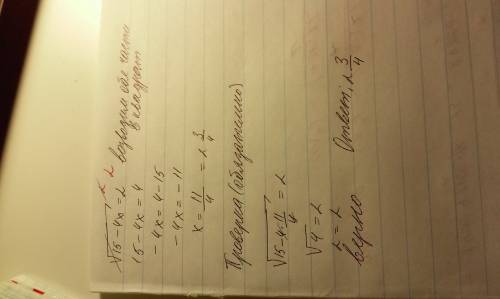 √15-4x = 2   2 2 возводим обе части
в квадрат
15-4x = 4
-4x = 4-15
-4x = -11
x = 11/4 = 2 3/4
Проверка (обязательно)
√15-4·11/4 = 2
√4 = 2
2 = 2
верно   Ответ: 2 3/4